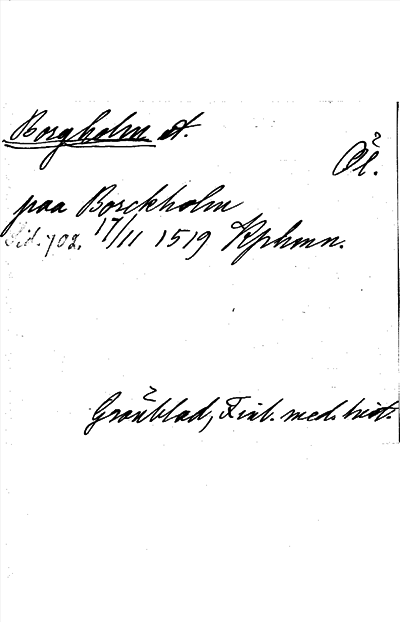 Borgholm st.
Öl.
paa Borckholm
Sid. 702. 17/11 1519 Kphmn.
Grönblad, Finl. med. hist.